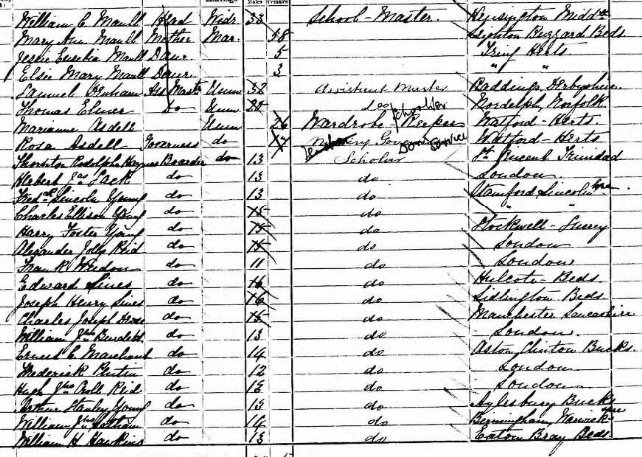 Males Females
William C. Maull Head Widr. 33 School-Master. Kensington Middx
Mary Ann Maull Mother Mar. 58 Leighton Buzzard Beds
Jessie Eusebia Maull Daur. 5 Tring Herts
Elsie Mary Maull Daur. 3 " "
Samuel Asst Mastr Unm 32 Assistant Master Derbyshire
Thomas Elmer do Unm 20 do Nordelph, Norfolk
Marianne Asdell Unm 26 Wardrobe Keeper Watford - Herts
Rosa Asdell Governess do 17 Watford - Herts
Thornton Rodolph Haynes Boarder do 13 Scholar St Vincent Trinidad
Herbert Jas Jack do 13 do London
Fredk Lincoln Young do 13 do Stamford Lincoln
Charles Ellison Young do 15 do " "
Harry Foster Young do 15 do Stockwell - Surrey
Alexander Jolly Reid do 15 do London
Frank Windom do 11 do London
Edward Sines do 16 do Hulcote - Beds
Joseph Henry Sines do 16 do Sidlington Beds
Charles Joseph do 15 do Manchester Lancashire
William Jno Burdett do 13 do London
Ernest C. Marchant do 14 do Aston Clinton Bucks
Frederick do 12 do London
Hugh Reid do 13 do London
Arthur Stanley Young do 13 do Aylesbury Bucks
William do 14 do Birmingham Warwick
William H. Hawkins do 13 do Eaton Bray Beds